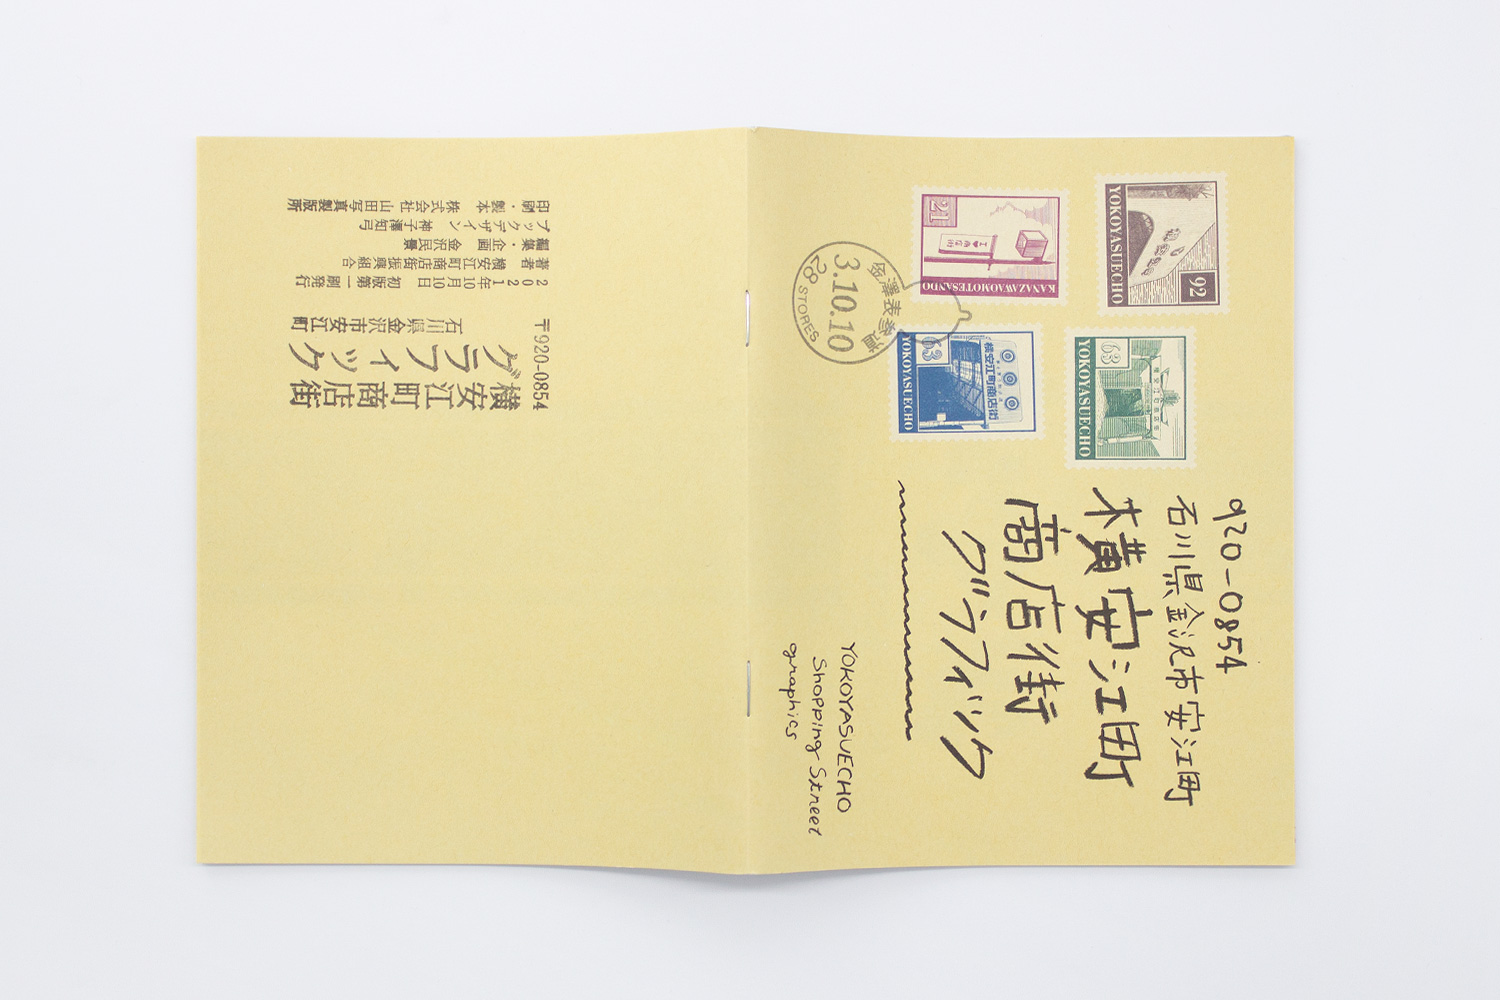 920-0854
石川県金沢市安江町
横安江町
商店街
グラフィック
YOKOYASUECHO
Shopping Street
graphics
92
YOKOYASUECHO
21
KANAZAWAOMOTESANDO
63
YOKOYASUECHO
横安江町商店街
63
YOKOYASUECHO
金澤表参道
3.10.10
28 STORES
〒920-0854
石川県金沢市安江町
横安江町商店街
グラフィック
2021年10月10日 初版第一刷発行
著者 横安江町商店街振興組合
編集・企画 金沢民景
ブックデザイン 神子澤知弓
印刷・製本 株式会社 山田写真製版所